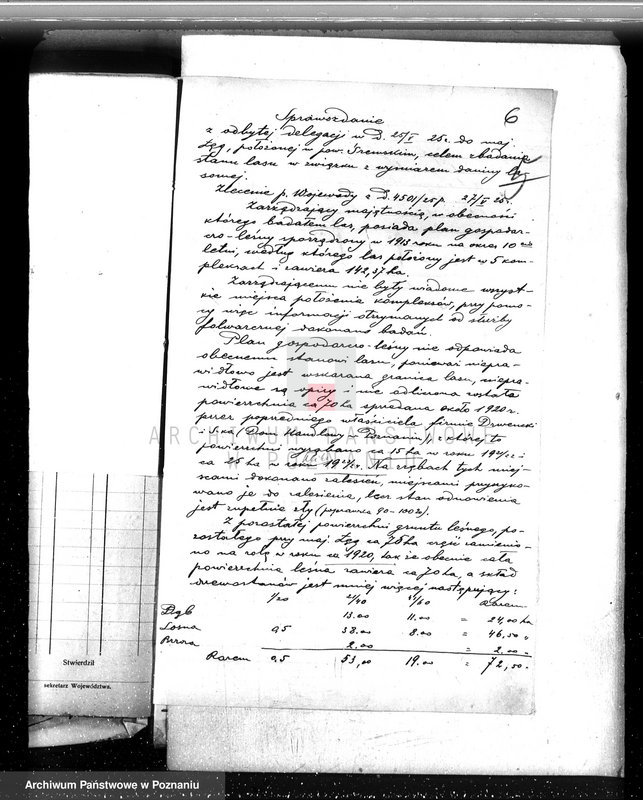 6
Sprawozdanie
z odbytej delegacji w d. 25/V 25r. do maj.
Łęg, położonej w pow. Śremskim, celem zbadania
stanu lasu w związku z wymiarem daniny la-
sowej.
Zlecenie p. Wojewody z D. 4501/25 p. 27/V 25r.
Zarządzający majętnością, w obecności
którego badałem las, posiada plan gospodar-
czo-leśny sporządzony w 1913 roku na okres 10 cio
letni, według którego las położony jest w 5 kom-
pleksach i zawiera 142,37 ha.
Zarządzającemu nie były wiadome wszyst-
kie miejsca położenia kompleksów, przy pomo-
cy więc informacji otrzymanych od służby
folwarcznej dokonano badań.
Plan gospodarczo-leśny nie odpowiada
obecnemu stanowi lasu, ponieważ niepra-
widłowo jest wskazana granica lasu, niepra-
widłowe są opisy i nie odliczona została
powierzchnia ca 70 ha sprzedana około 1920 r.
przez poprzedniego właściciela firmie Drwęcki
i S-ka (Dom Handlowy Poznań), z której to
powierzchni wyrąbano ca 15 ha w roku
ca 25 ha w roku Na zrębach tych miej-
scami dokonano zalesień, miejscami przyszyko-
wano je do zalesienia, lecz stan odnowienia
jest zupełnie zły (
Z pozostałej powierzchni gruntu leśnego, po-
zostałego przy maj. Łęg ca 75 ha część zamienio-
no na rolę w roku ca 1920, tak że obecnie cała
powierzchnia leśna zawiera ca 70 ha, a skład
drzewostanów jest mniej więcej następujący:
1/20 21/40 41/60 Razem
Dąb 13.00 11.00 = 24,00 ha
Sosna 0.5 38.00 8.00 = 46,50 "
Brzoza 2.00 = 2.00 "
Razem 0,5 53,00 19.00 = 72,50.
Stwierdził
sekretarz Województwa.
ARCHIWUM PAŃSTWOWE
W POZNANIU
Archiwum Państwowe w Poznaniu